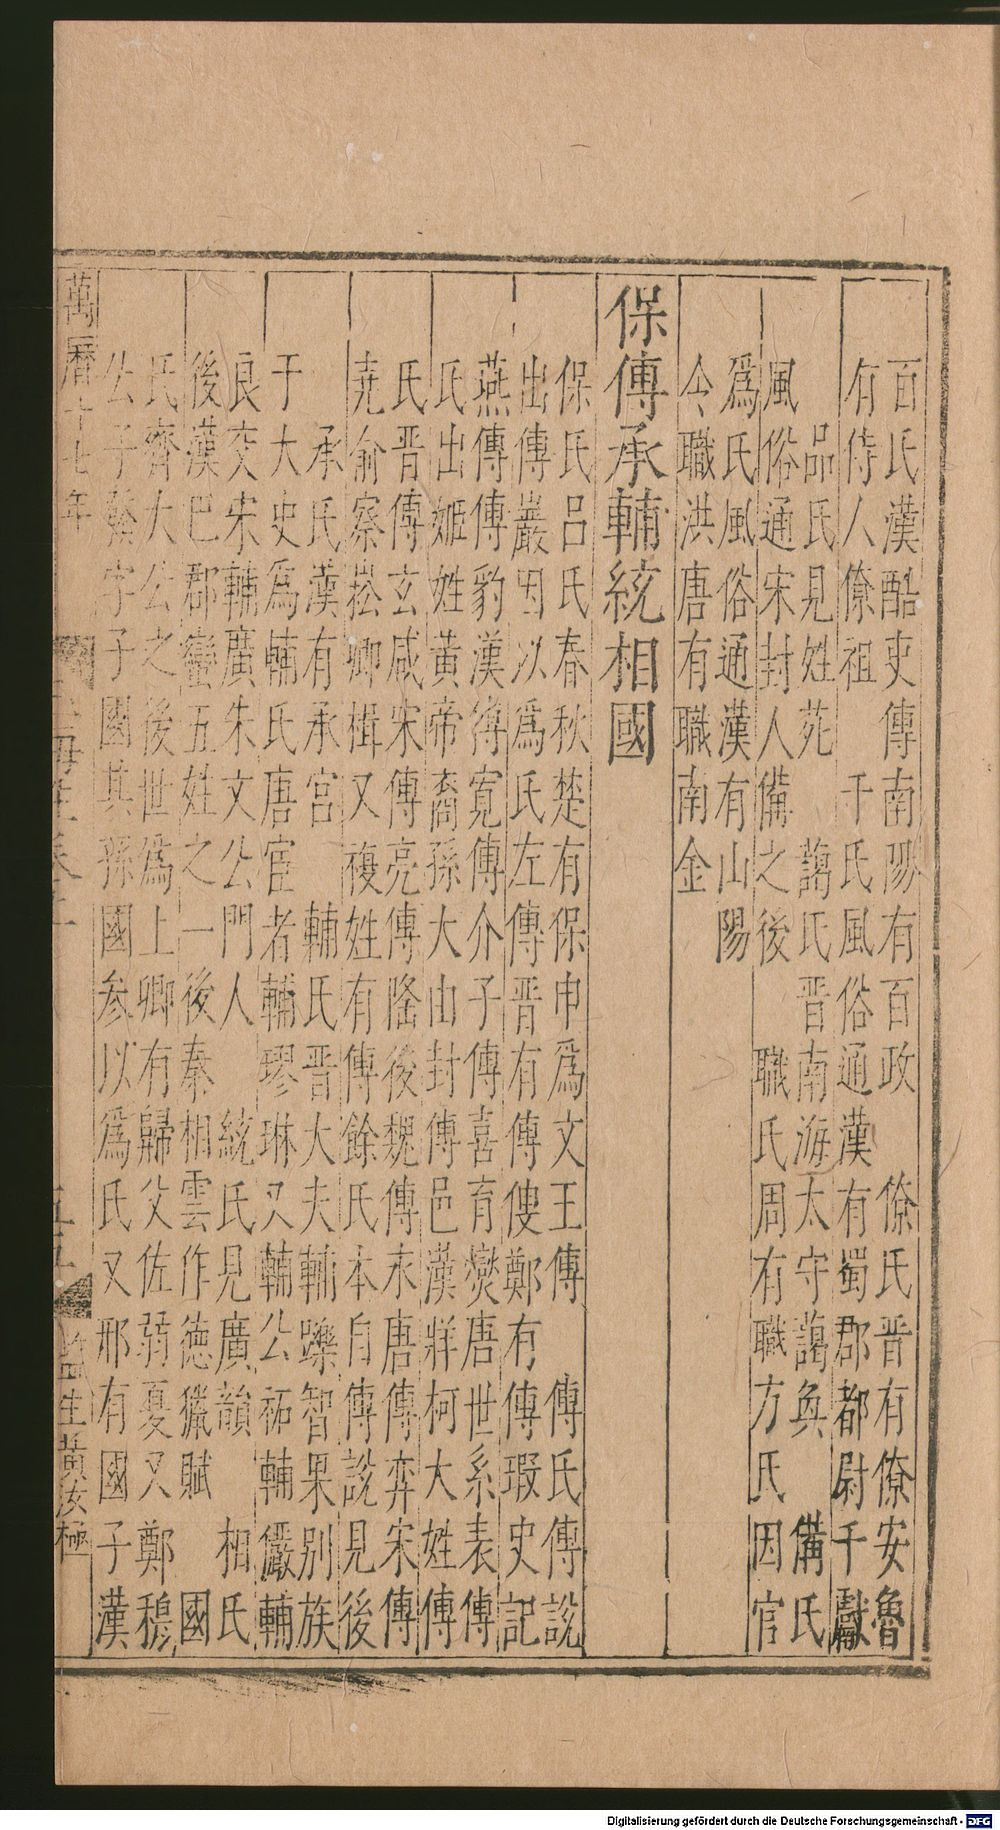 百氏漢酷吏傳南陽有百政　僚氏晋有僚安魯
有侍人僚祖　千氏風俗通漢有蜀郡都尉千獻
品氏見姓苑　蔿氏晋南海太守蔿奐　備氏
風俗通宋封人備之後　職氏周有職方氏因官
爲氏風俗通漢有山陽
今職洪唐有職南金
保傅承輔統相國
保氏呂氏春秋楚有保申爲文王傅　傅氏傅說
出傅巖因以爲氏左傳晋有傅傁鄭有傅瑕史記
燕傅傅豹漢傅寛傅介子傅喜育爕唐世系表傅
氏出姬姓黃帝裔孫大由封傅邑漢牂柯大姓傅
氏晋傅玄咸宋傅亮傅隆後魏傅永唐傅弈宋傅
堯俞察崧卿楫又複姓有傅餘氏本自傅說見後
承氏漢有承宮　輔氏晋大夫輔躒智果别族
于大史爲輔氏唐宦者輔璆琳又輔公祏輔儼輔
良交宋輔廣朱文公門人　統氏見廣韻　相氏
後漢巴郡蠻五姓之一後秦相雲作德獵賦　國
氏齊大公之後世爲上卿有歸父佐弱憂又鄭穆
公子發字子國其孫國参以爲氏又邢有國子漢
萬曆十七年
五
監生黃汝極
Digitalisierung gefördert durch die Deutsche Forschungsgemeinschaft - DFG